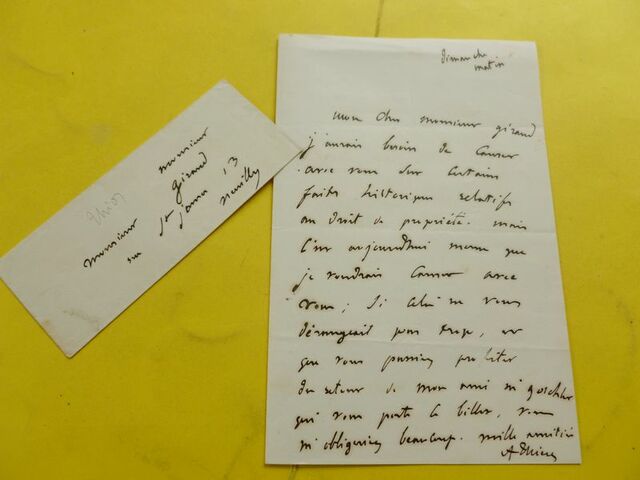 Dimanche
matin
mon cher monsieur girand
j'aurais besoin de causer
avec vous sur certains
faits historiques relatifs
au droit de propriété. mais
c'est aujourdhui meme que
je voudrais causer avec
vous; si cela ne vous
dérangeait pas trop, et
que vous puissiez profiter
du retour de mon ami m
qui vous porte ce billet, vous
m'obligeriez beaucoup. mille amitiés
A Thiers
Monsieur
monsieur girand
rue St James 13
neuilly
Thiers